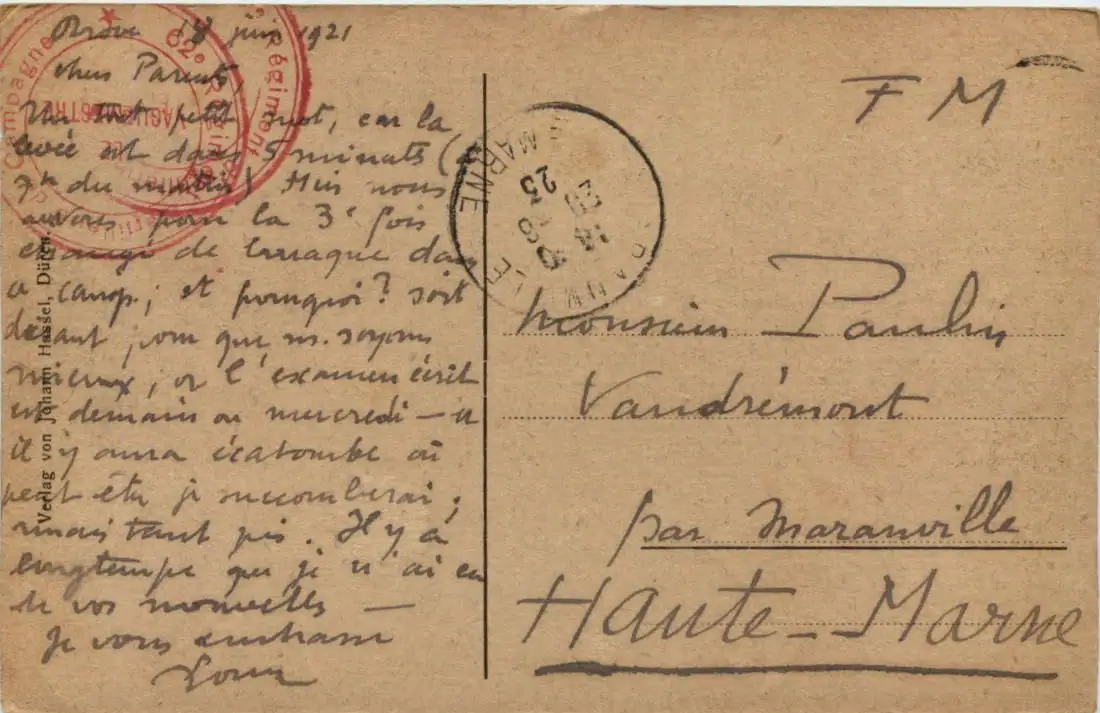 18 juin 1921
chers Parents,
Un tout petit mot, car la
levée est dans 5 minuts (à
7h du matin) Hier nous
avons pour la 3e fois
changé de baraque dans
ce camp; et pourquoi? soit
disant, pour que ns. soyons
mieux, or l'examen écrit
est demain ou mercredi — 
il y aura écatombe où
peut être je succomberai;
mais tant pis. Il y a
longtemps que je n'ai eu
de vos nouvelles —
Je vous embrasse
Louis
F M
Monsieur Paulin
Vaudrémont
par Maranville
HAUTE-MARNE
62e Régiment
Régiment
Campagne
Verlag von Johann Hassel, Düren.
MARNE